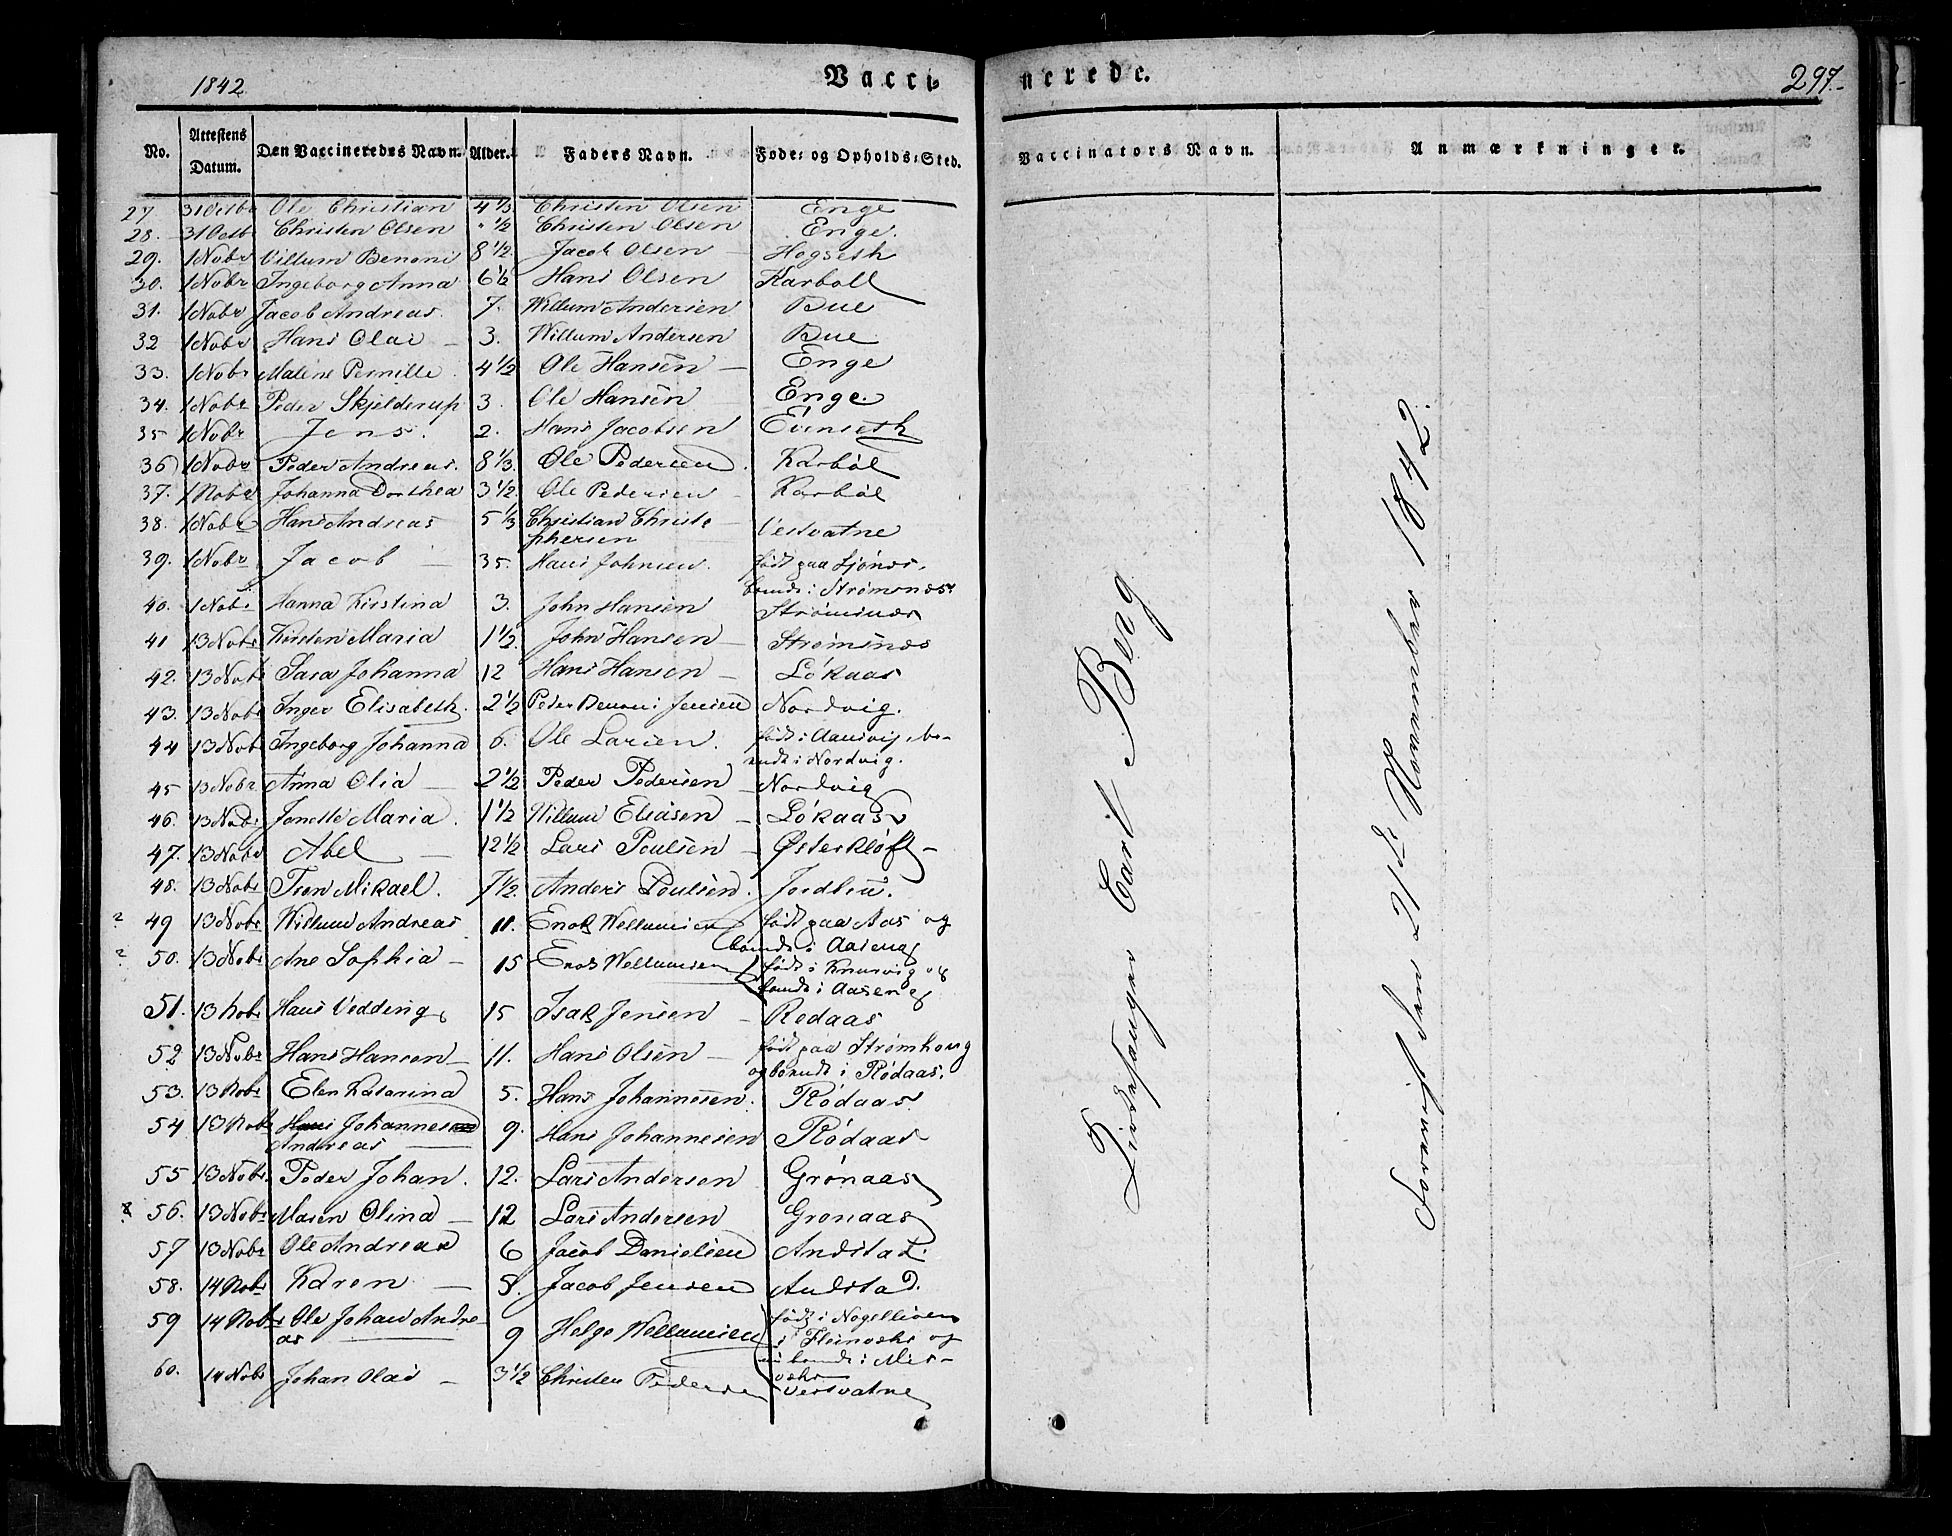 1842 Vacci- nerede. 297.-
No. Attestens Datum. Den Vaccineredes Navn. Alder. Faders Navn. Føde- og Opholds-Sted. Vaccinators Navn. Anmærkninger.
27. 31 Octbr Ole Christian 4 1/3 Christen Olsen Enge
28. 31 Octb Christen Olsen " 1/2 Christen Olsen Enge.
29. 1 Nobr Villum Benoni 8 1/2 Jacob Olsen Hogseth
30. 1 Nobr Ingeborg Anna 6 1/2 Hans Olsen Karboll
31. 1 Nobr Jacob Andreas. 7. Willum Andersen Bue
32 1 Nobr Hans Olai - 3. Willum Andersen Bue
33. 1 Nobr Malene Pernille. 4 1/2 Ole Hansen - Enge
34. 1 Nobr Peder Skjelderup 3. Ole Hansen Enge.
35 1 Nobr Jens. 2. Hans Jacobsen Evenseth
36) 1 Nobr Peder Andreas. 8 1/3. Ole Pedersen. Karbøl
37. 1 Nobr Johanna Dorthea 3 1/2. Ole Pedersen - Karbøl
38. 1 Nobr Hans Andreas 5 1/3 Christian Christo-
phersen Vestvatne
39. 1 Nobr Jacob - 35. Hans Johnsen. født paa Sjønes,
boende i Strømsnæs
40. 1 Nobr Hanna Kirstina 3. John Hansen Strømsnæs
41 13 Nobr Kirsten Maria 1 1/2. John Hansen - Strømsnæs
42. 13 Nobr Sara Johanna 12 Hans Hansen - Løkaas
43. 13 Nobr Inger Elisabeth. 2 1/2 Peder Benoni Jensen Nordvig.
44 13 Nobr Ingeborg Johanna 6. Ole Larsen. født i Aansvig, bo-
ende i Nordvig.
45 13 Nobr Anna Olia - 2 1/2 Peder Pedersen - Nordvig
46. 13 Nobr Jonette Maria. 1 1/2 Willum Eliasen - Løkaas
47. 13 Nobr Abel - 12 1/2 Lars Poulsen - Østerkløft -
48. 13 Nobr Iven Mikael. 7 1/2. Anders Poulsen. Jordbru.
? 49 13 Nobr Willum Andreas 11. Enok Wellumsen født paa Aas og
boende i Aaseng
? 50. 13 Nobr Ane Sophia - 15 Enok Wellumsen født i Knarvig og
boende i Aaseng
51. 13 Nobr Hans Vedding 15 Isak Jensen - Rødaas
52 13 Nobr Hans Hansen - 11. Hans Olsen - født paa Strømhoug
og boende i Rødaas.
53. 13 Nobr Elen Katarina 5. Hans Johannesen. Rødaas
54 13 Nobr Hans Johannes
Andreas - 9. Hans Johannesen Rødaas
55 13 Nobr. Peder Johan. 12. Lars Andersen Grønaas
56. 13 Nobr Maren Olina - 12 Lars Andersen Grønaas
57 13 Nobr Ole Andreas 6 Jacob Danielsen Andstad.
58. 14 Nobr Karen - 8. Jacob Jensen Andstad.
59 14 Nobr Ole Johan Andre-
as 9 Helge Wellumsen født i
i Fleinvær og
nu boende i Mis-
vær
60. 14 Nobr Johan Olai - 3 1/2 Christen Pedersen Vestvatne
Carit Berg
den 21de November 1842.